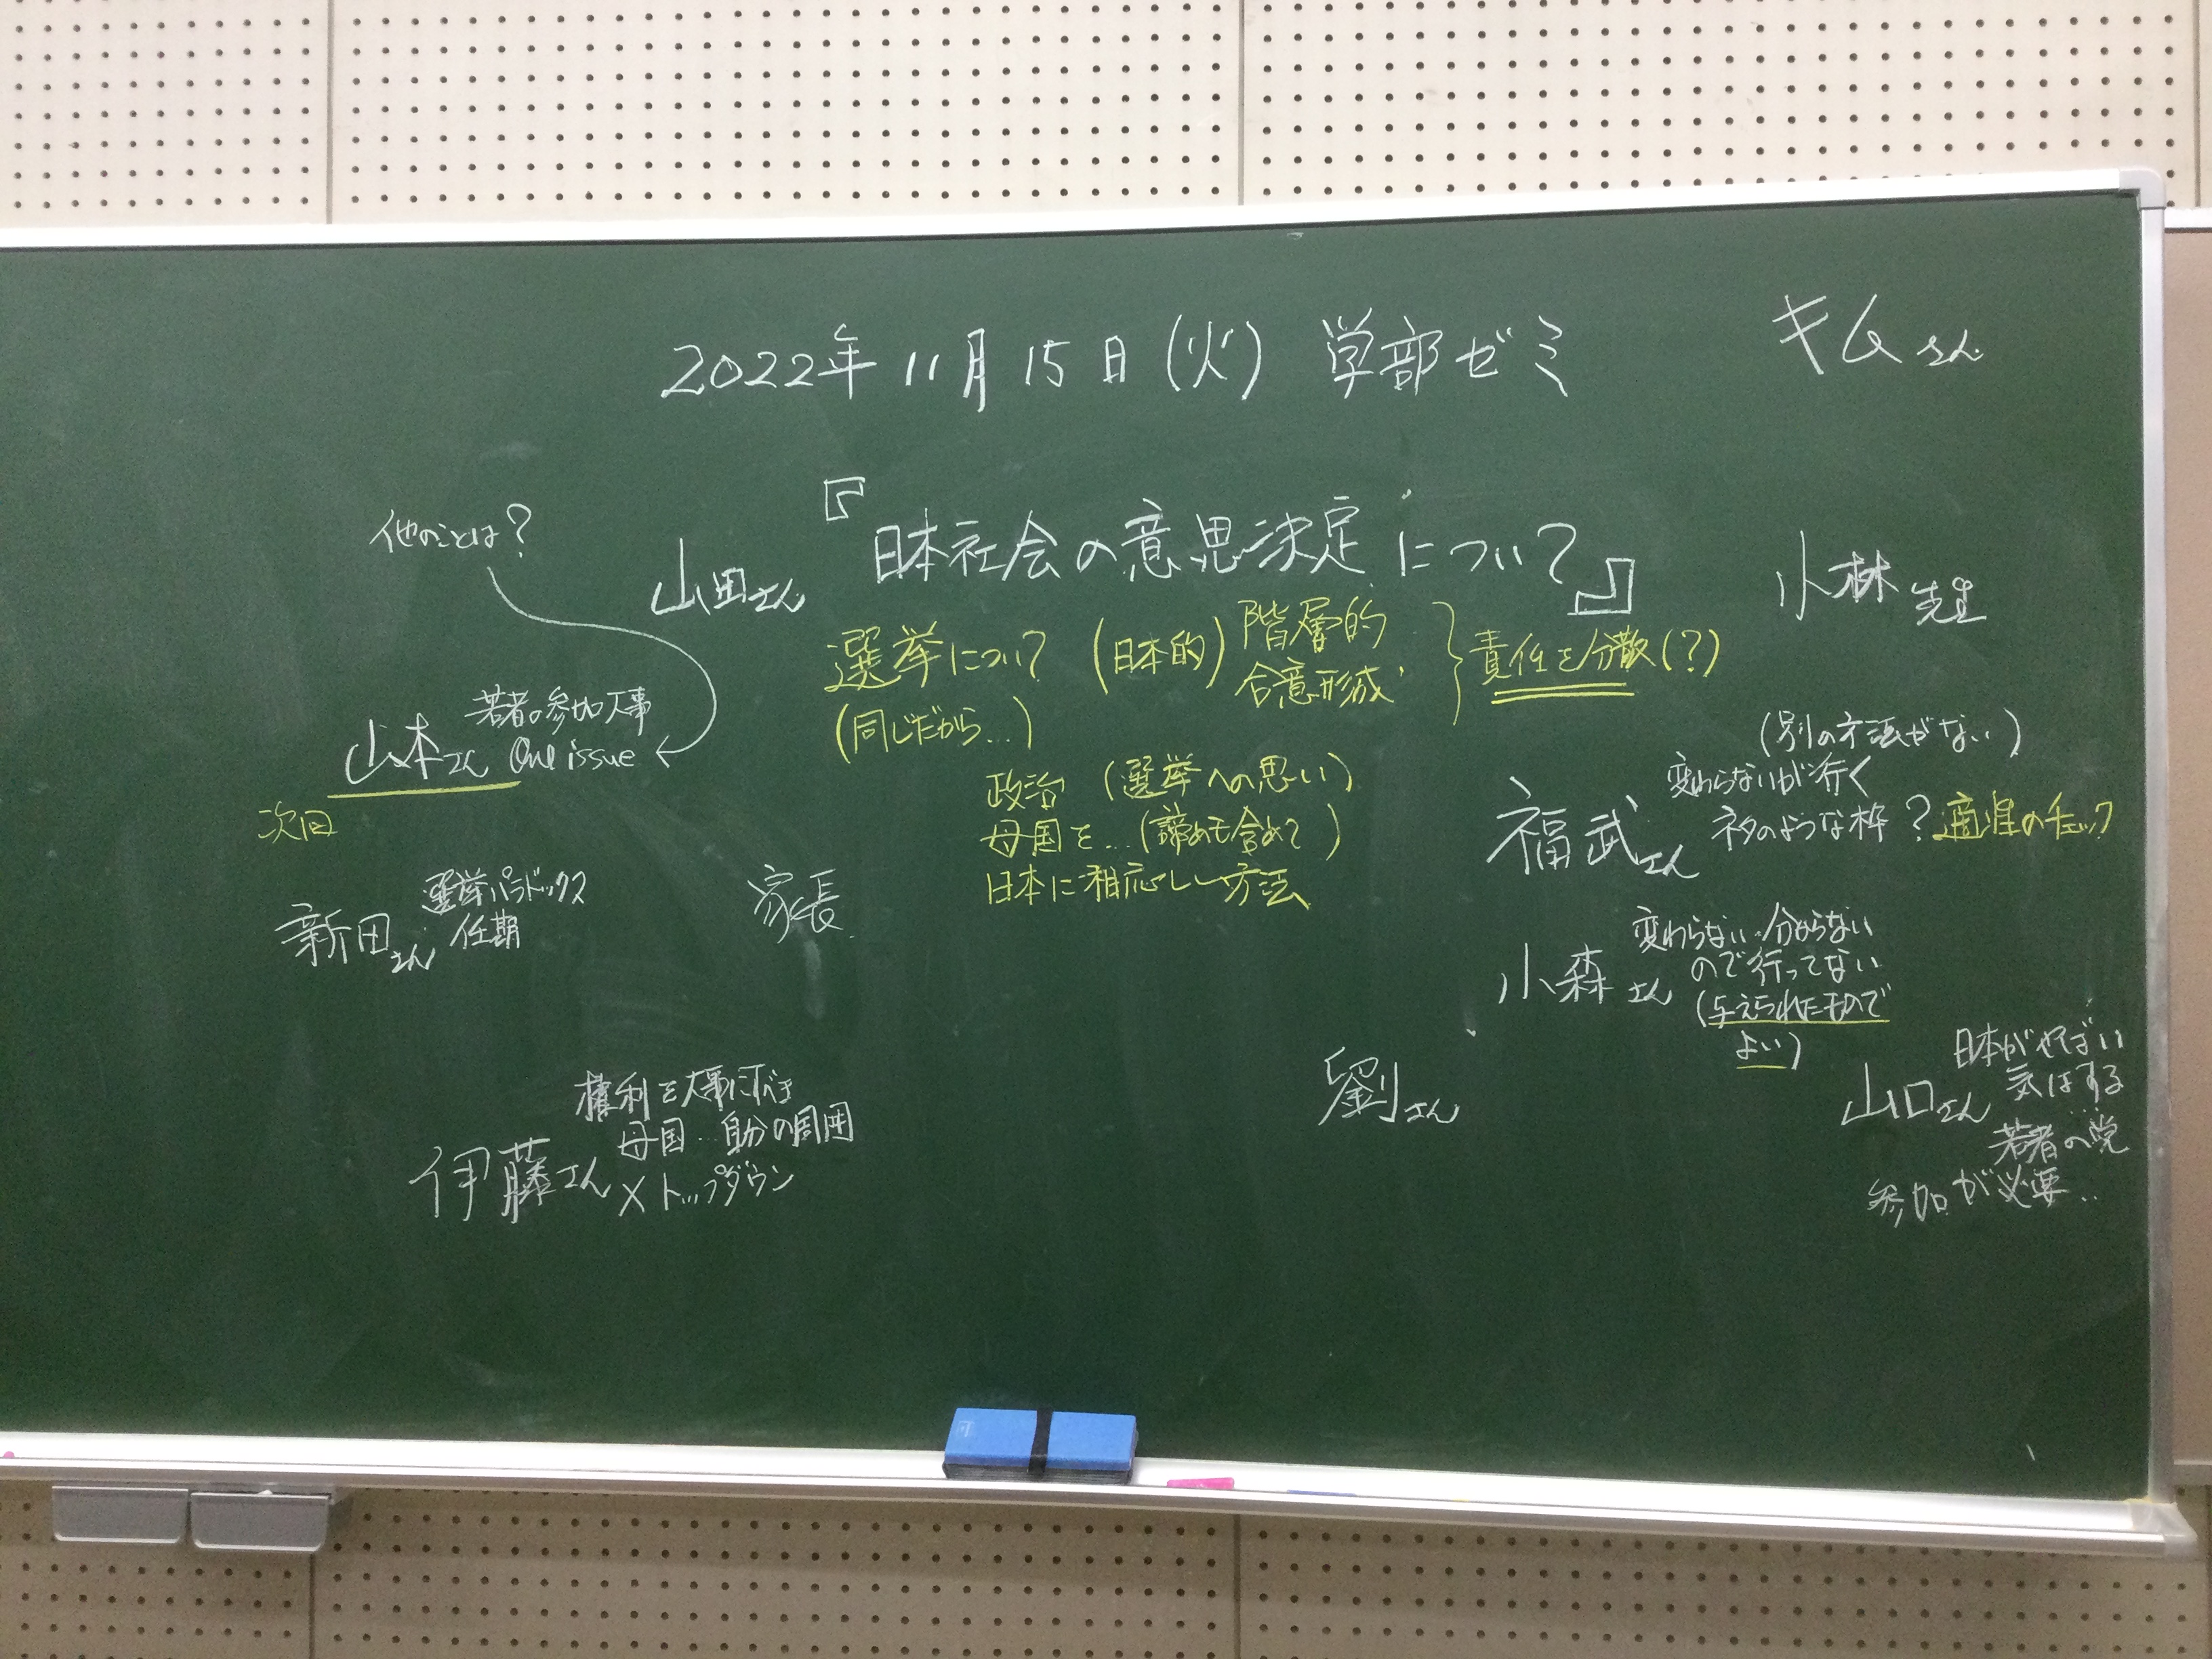 2022年11月15日(火) 学部ゼミ
キムさん
『日本社会の意思決定について』
山田さん
小林先生
他のことは?
選挙について (日本的) 階層的
合意形成
責任を分散(?)
(同じだから...)
若者の参加大事
山本さん One issue
次回
政治 (選挙への思い)
母国を...(諦めも含めて)
日本に相応しい方法
(別の方法がない)
変わらないが行く
福武さん ネタのような枠? 適性のチェック
選挙パラドックス
新田さん 任期
家長
変わらない・分からない
小森さん ので行ってない
(与えられたもので
よい)
権利を大事にすべき
母国...自分の周囲
伊藤さん ×トップダウン
劉さん
日本がやばい
山口さん 気はする
若者の党
参加が必要..